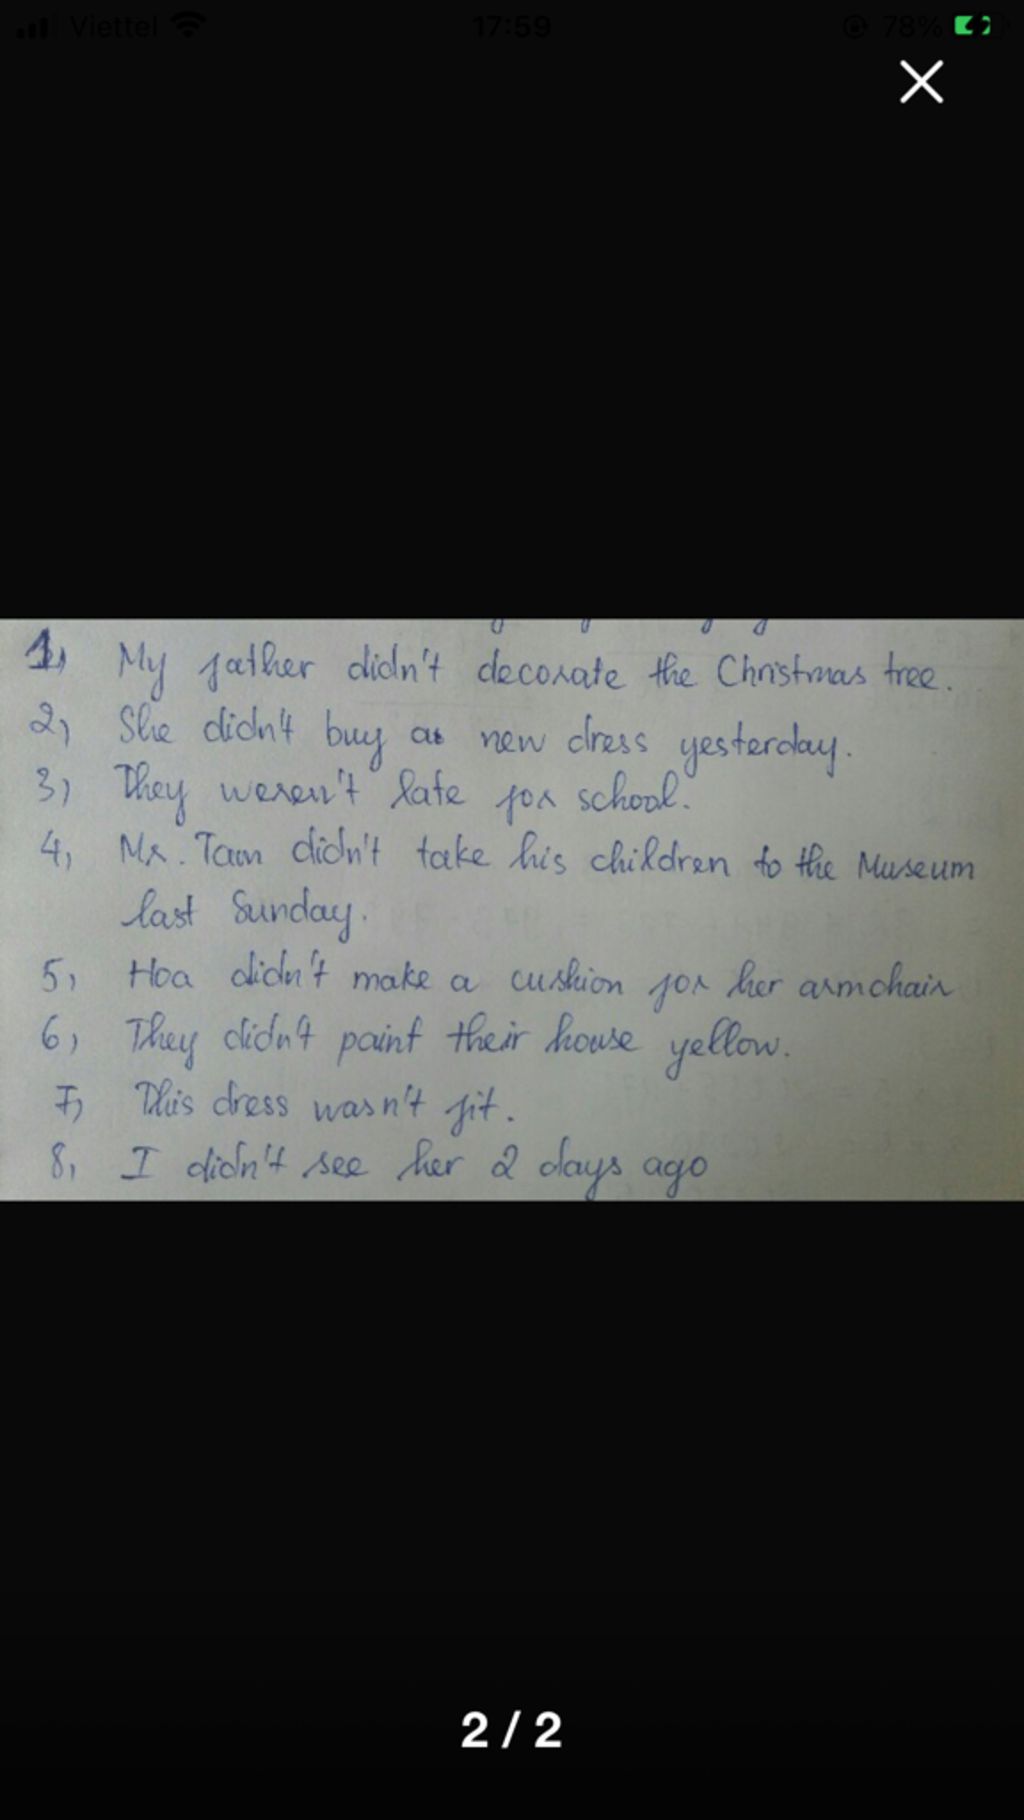 Viettel 17:59 78%
1, My father didn't decorate the Christmas tree.
2, She didn't buy a new dress yesterday.
3, They weren't late for school.
4, Mr. Tam didn't take his children to the Museum
last Sunday.
5, Hoa didn't make a cushion for her armchair
6, They didn't paint their house yellow.
7, This dress wasn't fit.
8, I didn't see her 2 days ago
2 / 2